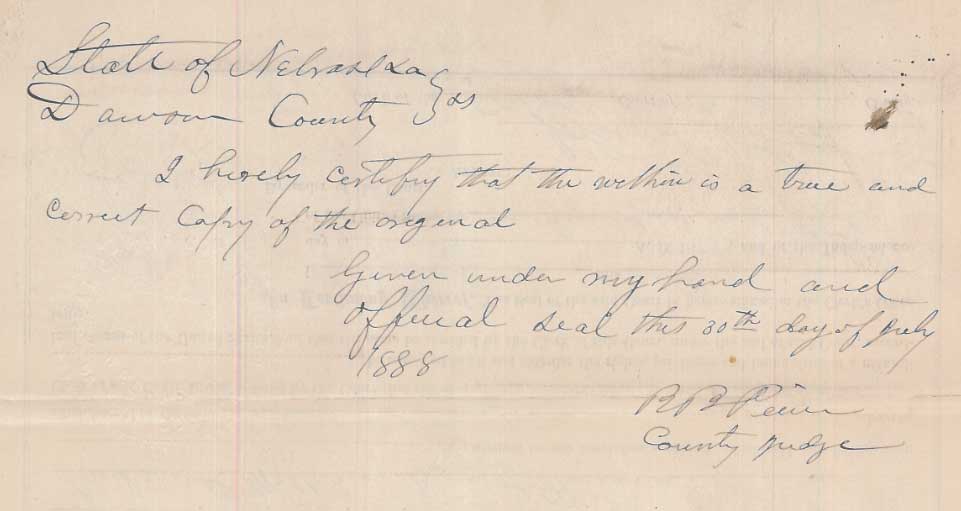 State of Nebraska
Dawson County } ss
I hereby certify that the within is a true and
correct Copy of the original
Given under my hand and
official seal this 30th day of July
1888
R B Pierce
County Judge